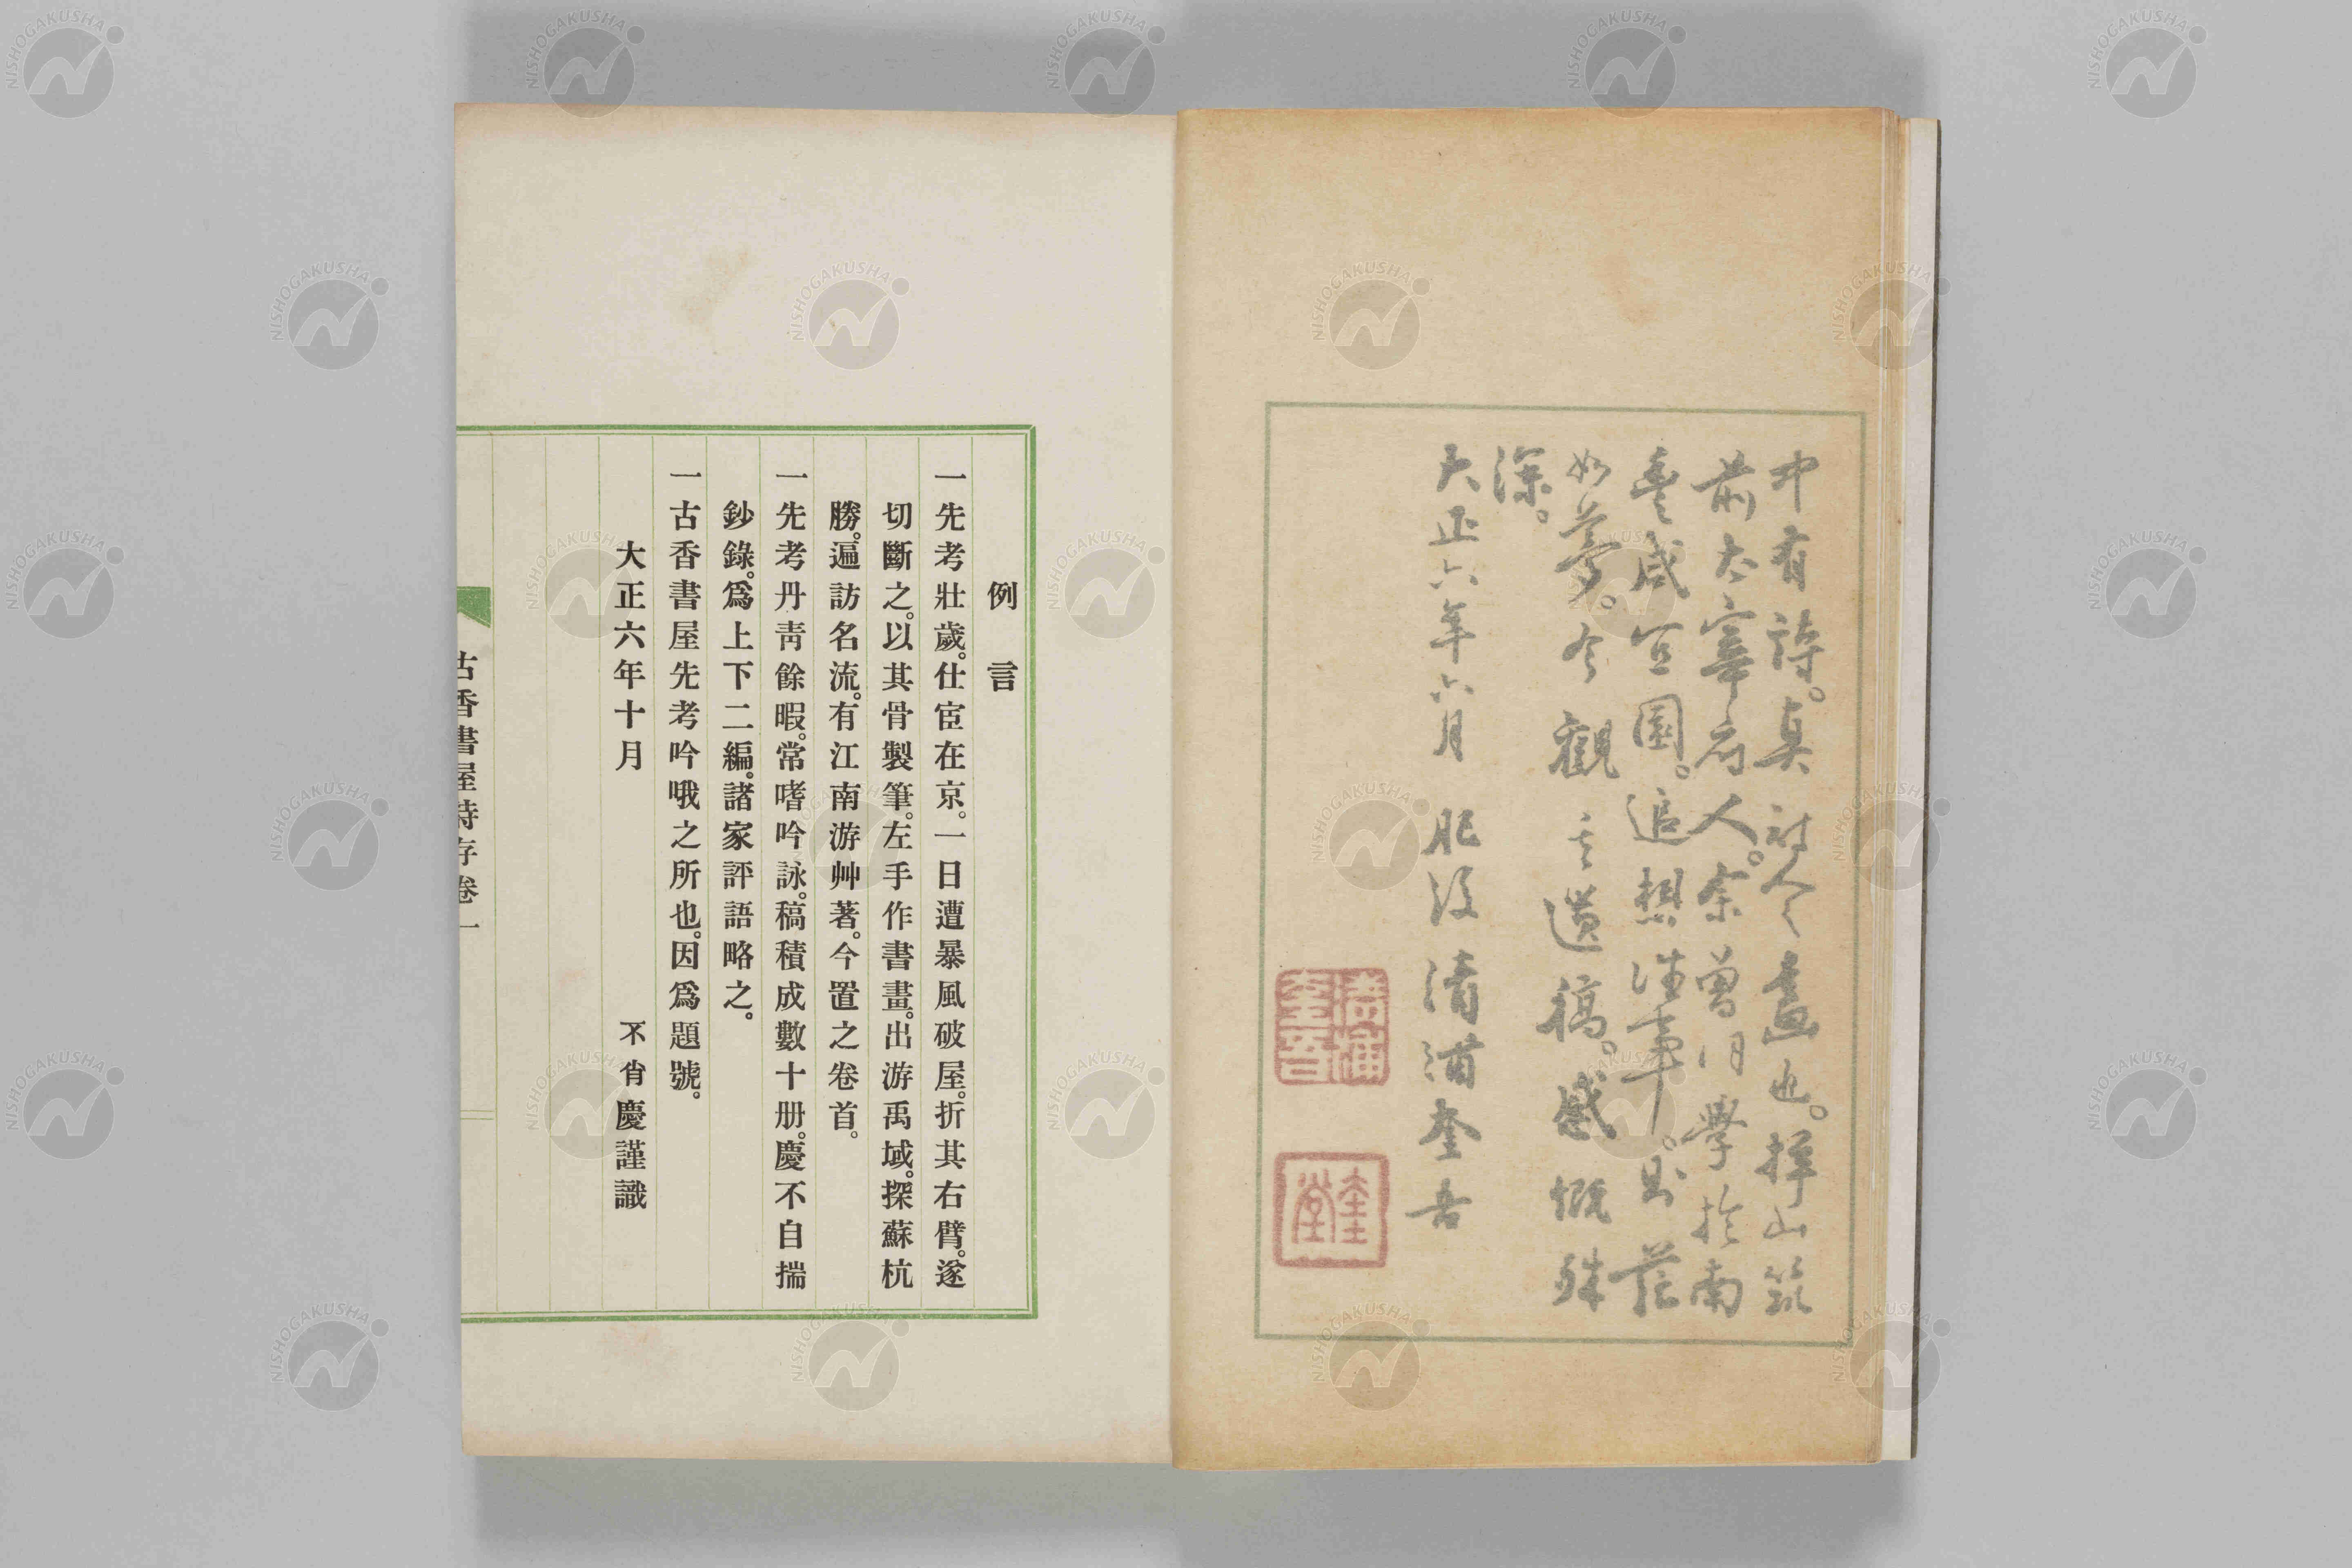 中有詩。真詩人之畫也。擇山筑
前太宰府人。余曾同學於南
豊咸宜園。追想往事。則茫
如夢。今觀其遺稿。感慨殊
深。
大正六年六月 肥後 清浦奎吾
清浦奎吾
奎堂
例言
一先考壯歲。仕宦在京。一日遭暴風破屋。折其右臂。遂
切斷之。以其骨製筆。左手作書畫。出游禹域。探蘇杭
勝。遍訪名流。有江南游艸著。今置之卷首。
一先考丹靑餘暇。常嗜吟詠。稿積成數十册。慶不自揣
鈔錄。爲上下二編。諸家評語略之。
一古香書屋先考吟哦之所也。因爲題號。
大正六年十月 不肖慶謹識
古香書屋詩存卷一
NISHOGAKUSHA